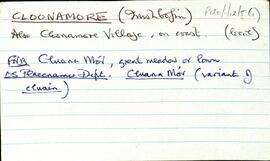 CLOONAMORE (Inishbofin)
Also Cloonamore Village, on coast. (local)
FNB Cluana Mór, great meadow or lawn
OS Placenames Dept. Cluana Mór (variant of
cluain)